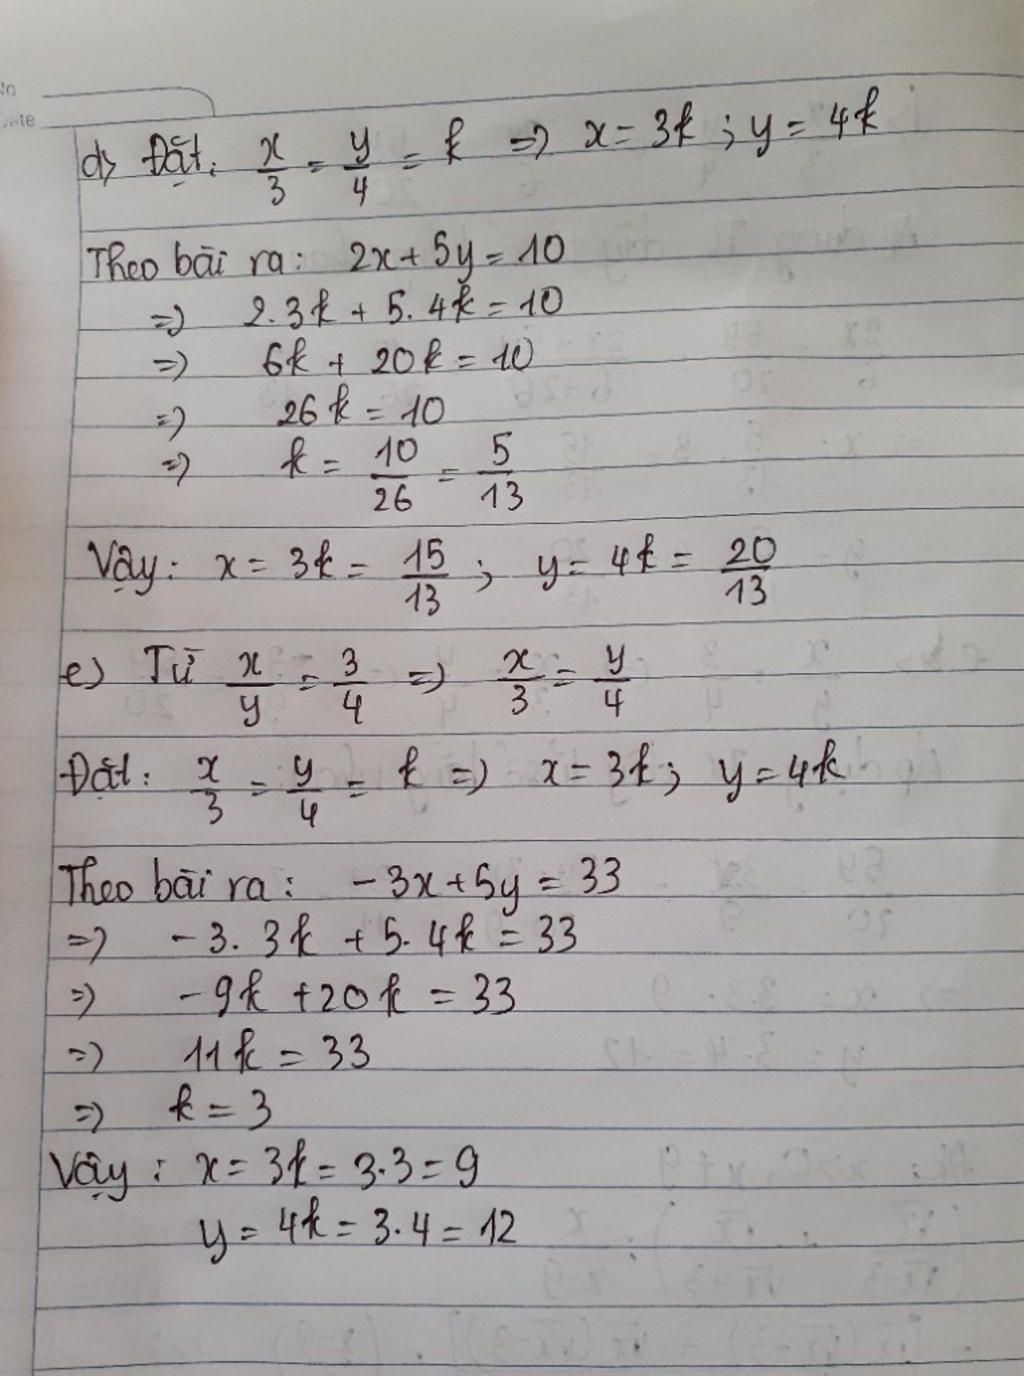 No
d) Đặt: x/3 = y/4 = k => x = 3k ; y = 4k
Theo bài ra: 2x + 5y = 10
=> 2.3k + 5.4k = 10
=> 6k + 20k = 10
=> 26k = 10
=> k = 10/26 = 5/13
Vậy: x = 3k = 15/13 ; y = 4k = 20/13
e) Từ x/y = 3/4 => x/3 = y/4
Đặt: x/3 = y/4 = k => x = 3k ; y = 4k
Theo bài ra: -3x + 5y = 33
=> -3.3k + 5.4k = 33
=> -9k + 20k = 33
=> 11k = 33
=> k = 3
Vậy: x = 3k = 3.3 = 9
y = 4k = 3.4 = 12